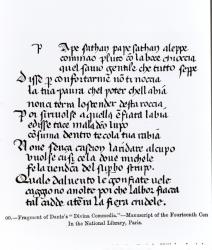 Pape sathan pape sathan aleppe
cominciao pluto co la boce chioccia
quel savio gentile che tutto seppe
Disse p confortarme nō ti noccia
la tua paura che poter chelli abia
non a torra lo scender desta roccia
Poi si rivolse a quella
e disse tace maladecto lupo
cōsuma dentro te cola tua rabia
None senza cagion landare al cupo
vuolse cosi cola dove michele
fe la vendeta del supbo strupo
Quale dal vento le gonfiate vele
caggiono involte poi che lalbor fiacca
tal cadde ad terra la fiera crudele
00.—Fragment of Dante's "Divina Commedia."—Manuscript of the Fourteenth Cen
In the National Library, Paris.